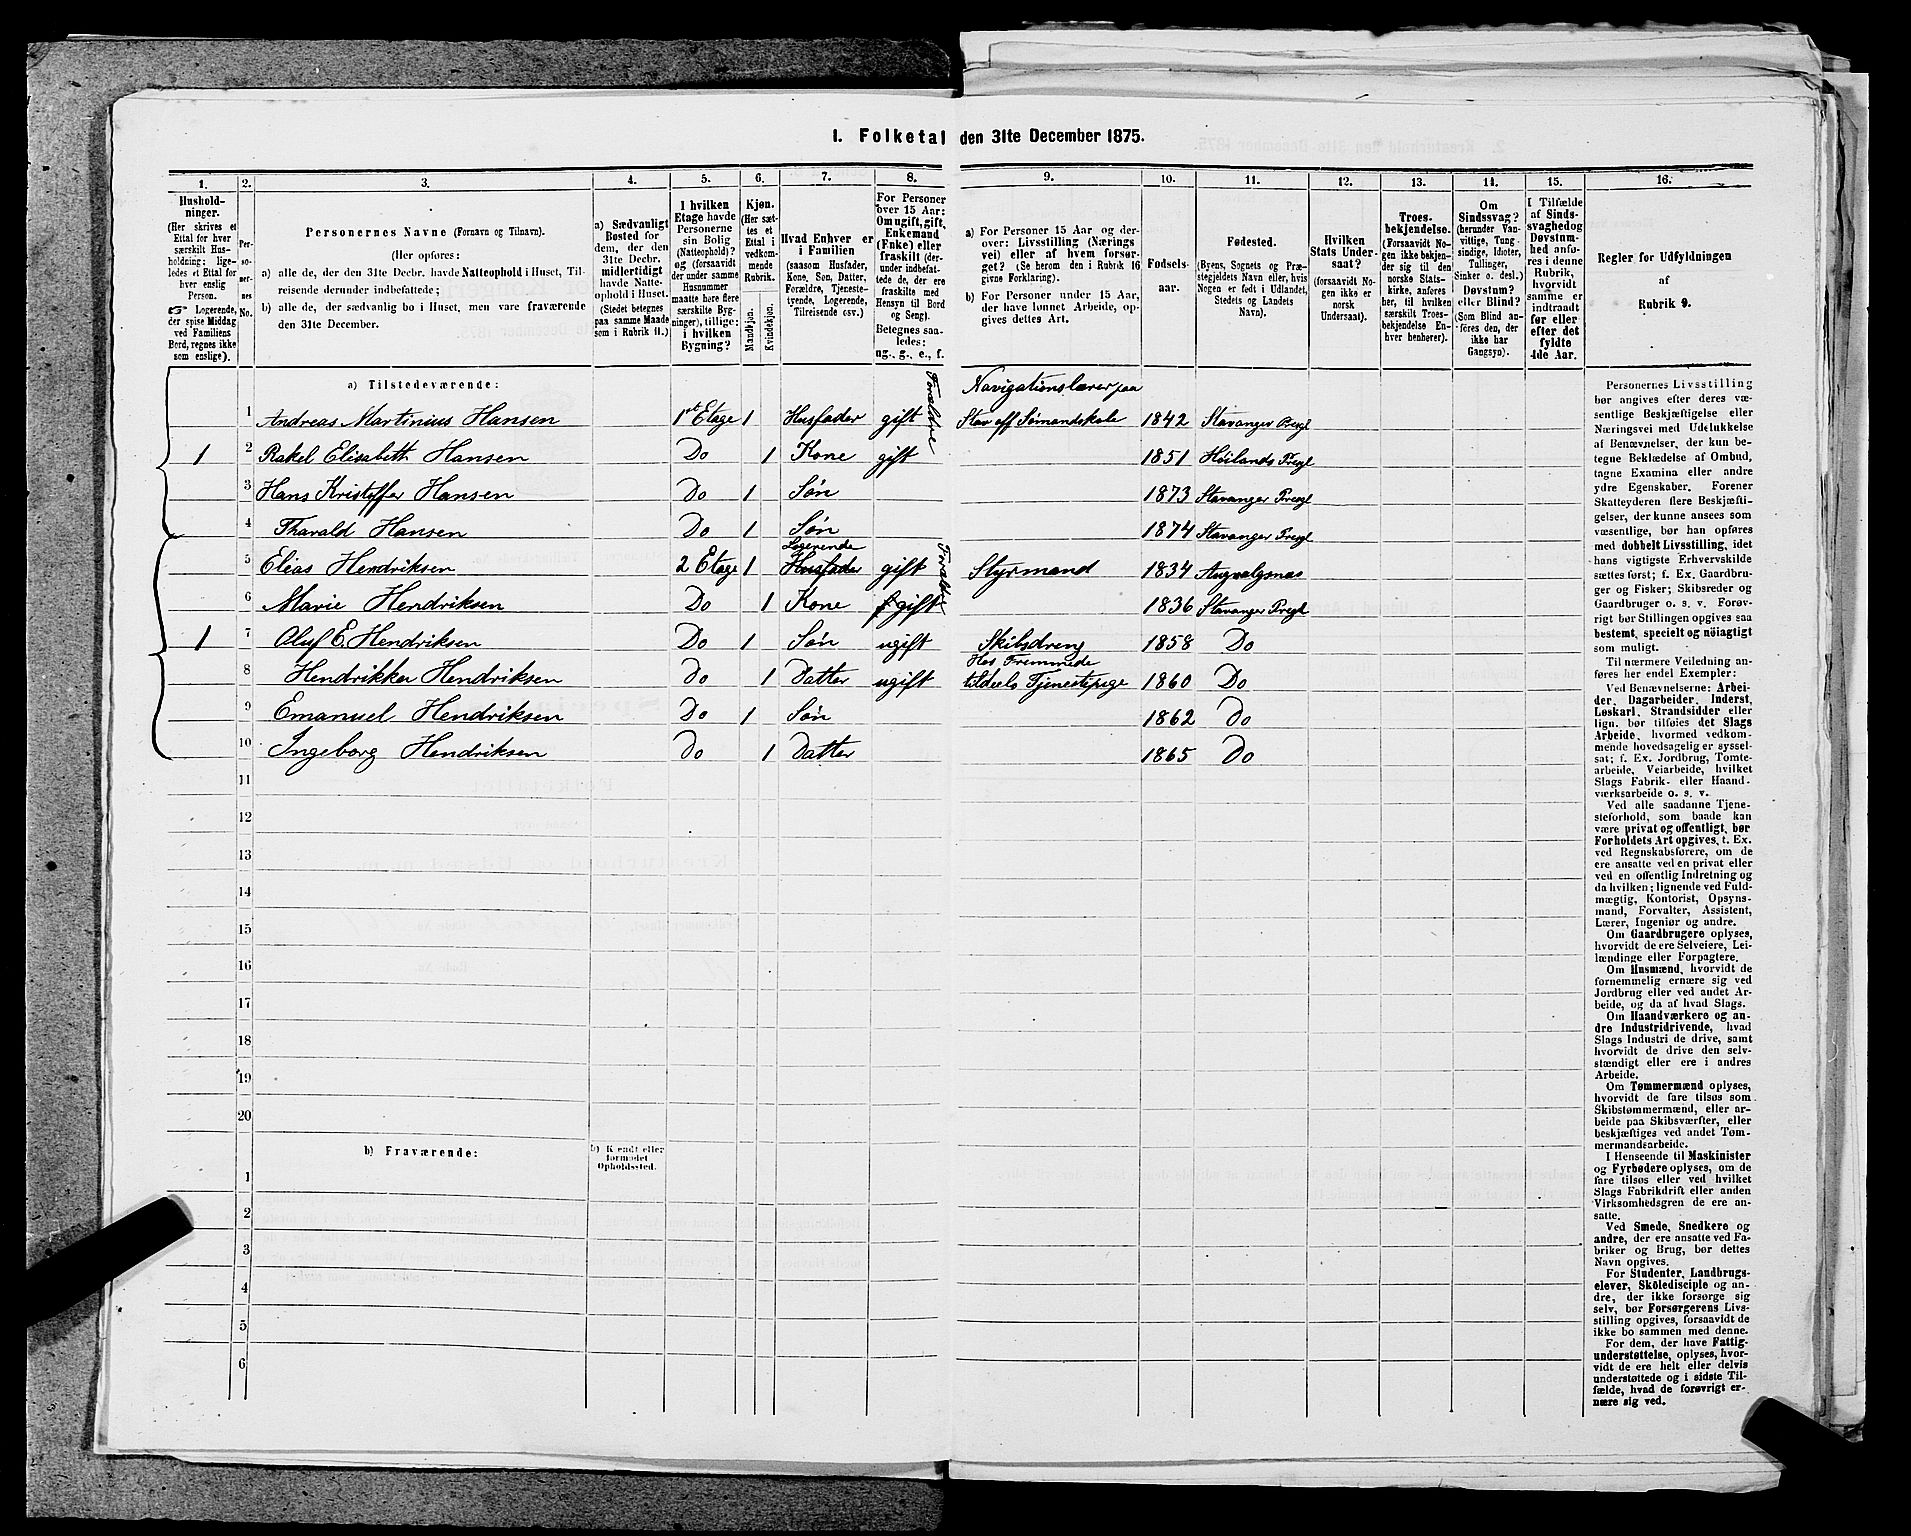 1. Folketal den 31te December 1875.
1. 2. 3. 4. 5. 6. 7. 8. 9. 10. 11. 12. 13. 14. 15. 16.
Hushold-
ninger.
(Her skrives et
Ettal for hver
særskilt Hus-
holdning; lige-
ledes et Ettal for
hver enslig
Person.
☞ Logerende,
der spise Middag
ved Familiens
Bord, regnes ikke
som enslige).
Per-
so-
ner-
nes
No.
Personernes Navne (Fornavn og Tilnavn).
(Her opføres:
a) alle de, der den 31te Decbr. havde Natteophold i Huset, Til-
reisende derunder indbefattede;
b) alle de, der sædvanlig bo i Huset, men vare fraværende
den 31te December.
a) Sædvanligt
Bosted for
dem, der den
31te Decbr.
midlertidigt
havde Natte-
ophold i Huset.
(Stedet betegnes
paa samme Maade
som i Rubrik 11.)
I hvilken
Etage havde
Personerne
sin Bolig
(Natteophold)?
og (forsaavidt
der under samme
Husnummer
maatte høre flere
særskilte Byg-
ninger), tillige:
i hvilken
Bygning?
Kjøn.
(Her sæt-
tes et
Ettal i
vedkom-
mende
Rubrik.
Mandkjøn.
Kvindekjøn.
Hvad Enhver er
i Familien
(saasom Husfader,
Kone, Søn, Datter,
Forældre, Tjeneste-
tyende, Logerende,
Tilreisende osv.)
For Personer
over 15 Aar:
Om ugift, gift,
Enkemand
(Enke) eller
fraskilt (der-
under indbefat-
tede de, der ere
fraskilte med
Hensyn til Bord
og Seng).
Betegnes saa-
ledes:
ug., g., e., f.
a) For Personer 15 Aar og der-
over: Livsstilling (Nærings
vei) eller af hvem forsør-
get? (Se herom den i Rubrik 16
givne Forklaring).
b) For Personer under 15 Aar,
der have lønnet Arbeide, op-
gives dettes Art.
Fødsels-
aar.
Fødested.
(Byens, Sognets og Præ-
stegjeldets Navn eller, hvis
Nogen er født i Udlandet,
Stedets og Landets
Navn).
Hvilken
Stats Under-
saat?
(forsaavidt No-
gen ikke er
norsk
Undersaat).
Troes-
bekjendelse.
(Forsaavidt No-
gen ikke bekjen-
der sig til den
norske Stats-
kirke, anføres
her, til hvilken
særskilt Troes-
bekjendelse En-
hver henhører).
Om
Sindssvag?
(herunder Van-
vittige, Tung-
sindige, Idioter,
Tullinger,
Sinker o. desl.)
Døvstum?
eller Blind?
(Som Blind an-
føres den, der
ikke har
Gangsyn).
I Tilfælde
af Sinds-
svaghed og
Døvstum-
hed anfø-
res i denne
Rubrik,
hvorvidt
samme er
indtraadt
før eller
efter det
fyldte
4de Aar.
Regler for Udfyldningen
af
Rubrik 9.
a) Tilstedeværende:
Navigationslærer paa
1 Andreas Martinius Hansen 1ste Etage 1 Husfader gift Stav off Sømandskole 1842 Stavanger Pregl
Forældre
1 2 Rakel Elisabeth Hansen Do 1 Kone gift 1851 Høilands Pregl
3 Hans Kristoffer Hansen Do 1 Søn 1873 Stavanger Pregl
4 Tharald Hansen Do 1 Søn 1874 Stavanger Pregl
Logerende
5 Elias Hendriksen 2 Etage 1 Husfader gift Styrmand 1834 Augvalgsnæs
Forældre
6 Marie Hendriksen Do 1 Kone gift 1836 Stavanger Pregl
1 7 Oluf E. Hendriksen Do 1 Søn ugift Skibsdreng 1858 Do
Hos Fremmede
8 Hendrikka Hendriksen Do 1 Datter ugift tildeels Tjenestepige 1860 Do
9 Emanuel Hendriksen Do 1 Søn 1862 Do
10 Ingeborg Hendriksen Do 1 Datter 1865 Do
11
12
13
14
15
16
17
18
19
20
b) Fraværende:
b) Kjendt eller
formodet
Opholdssted.
1
2
3
4
5
6
Personernes Livsstilling
bør angives efter deres væ-
sentlige Beskjæftigelse eller
Næringsvei med Udelukkelse
af Benævnelser, der kun be-
tegne Beklædelse af Ombud,
tagne Examina eller andre
ydre Egenskaber. Forener
Skatteyderen flere Beskjæfti-
gelser, der kunne ansees som
væsentlige, bør han opføres
med dobbelt Livsstilling, idet
hans vigtigste Erhvervskilde
sættes først; f. Ex. Gaardbru-
ger og Fisker; Skibsreder og
Gaardbruger o. s. v. Forøv-
rigt bør Stillingen opgives saa
bestemt, specielt og nøiagtigt
som muligt.
Til nærmere Veiledning an-
føres her endel Exempler:
Ved Benævnelserne: Arbei-
der, Dagarbeider, Inderst,
Løskarl, Strandsidder eller
lign. bør tilføies det Slags
Arbeide, hvormed vedkom-
mende hovedsagelig er syssel-
sat; f. Ex. Jordbrug, Tomte-
arbeide, Veiarbeide, hvilket
Slags Fabrik- eller Haand-
værksarbeide o. s. v.
Ved alle saadanne Tjene-
steforhold, som baade kan
være privat og offentligt, bør
Forholdets Art opgives, t. Ex.
ved Regnskabsførere, om de
ere ansatte ved en privat eller
ved en offentlig Indretning og
da hvilken; lignende ved Fuld-
mægtig, Kontorist, Opsyns-
mand, Forvalter, Assistent,
Lærer, Ingeniør og andre.
Om Gaardbrugere oplyses,
hvorvidt de ere Selveiere, Lei-
lændinge eller Forpagtere.
Om Husmænd, hvorvidt de
fornemmelig ernære sig ved
Jordbrug eller ved andet Ar-
beide, og da af hvad Slags.
Om Haandværkere og an-
dre Industridrivende, hvad
Slags Industri de drive, samt
hvorvidt de drive den selv-
stændigt eller ere i andres
Arbeide.
Om Tømmermænd oplyses,
hvorvidt de fare tilsøs som
Skibstømmermænd, eller ar-
beide paa Skibsværfter, eller
beskjæftiges ved andet Tøm-
mermandsarbeide.
I Henseende til Maskinister
og Fyrbødere oplyses, om de
fare tilsøs eller ved hvilket
Slags Fabrikdrift eller anden
Virksomhedsgren de ere an-
satte.
Ved Smede, Snedkere og
andre, der ere ansatte ved Fa-
briker og Brug, bør dettes
Navn opgives.
For Studenter, Landbrugs-
elever, Skoledisciple og an-
dre, der ikke forsørge sig
selv, bør Forsørgerens Livs-
stilling opgives, forsaavidt de
ikke bo sammen med denne.
For dem, der have Fattig-
understøttelse, oplyses, hvor-
vidt de ere helt eller delvis
understøttede og i sidste Til-
fælde, hvad de forøvrigt er-
nære sig ved.